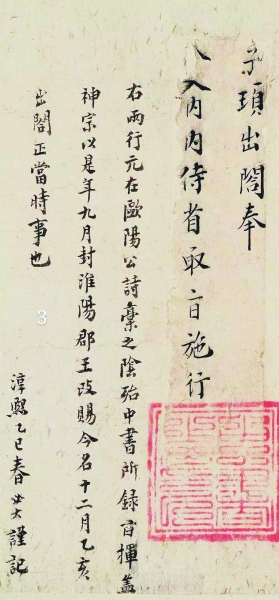 頊出閤奉
入內內侍省取旨施行
右兩行元在歐陽公詩藁之陰殆中書所錄旨揮蓋
神宗以是年九月封淮陽郡王改賜今名十二月乙亥
出閤正當時事也
3
淳熙乙巳春必大謹記